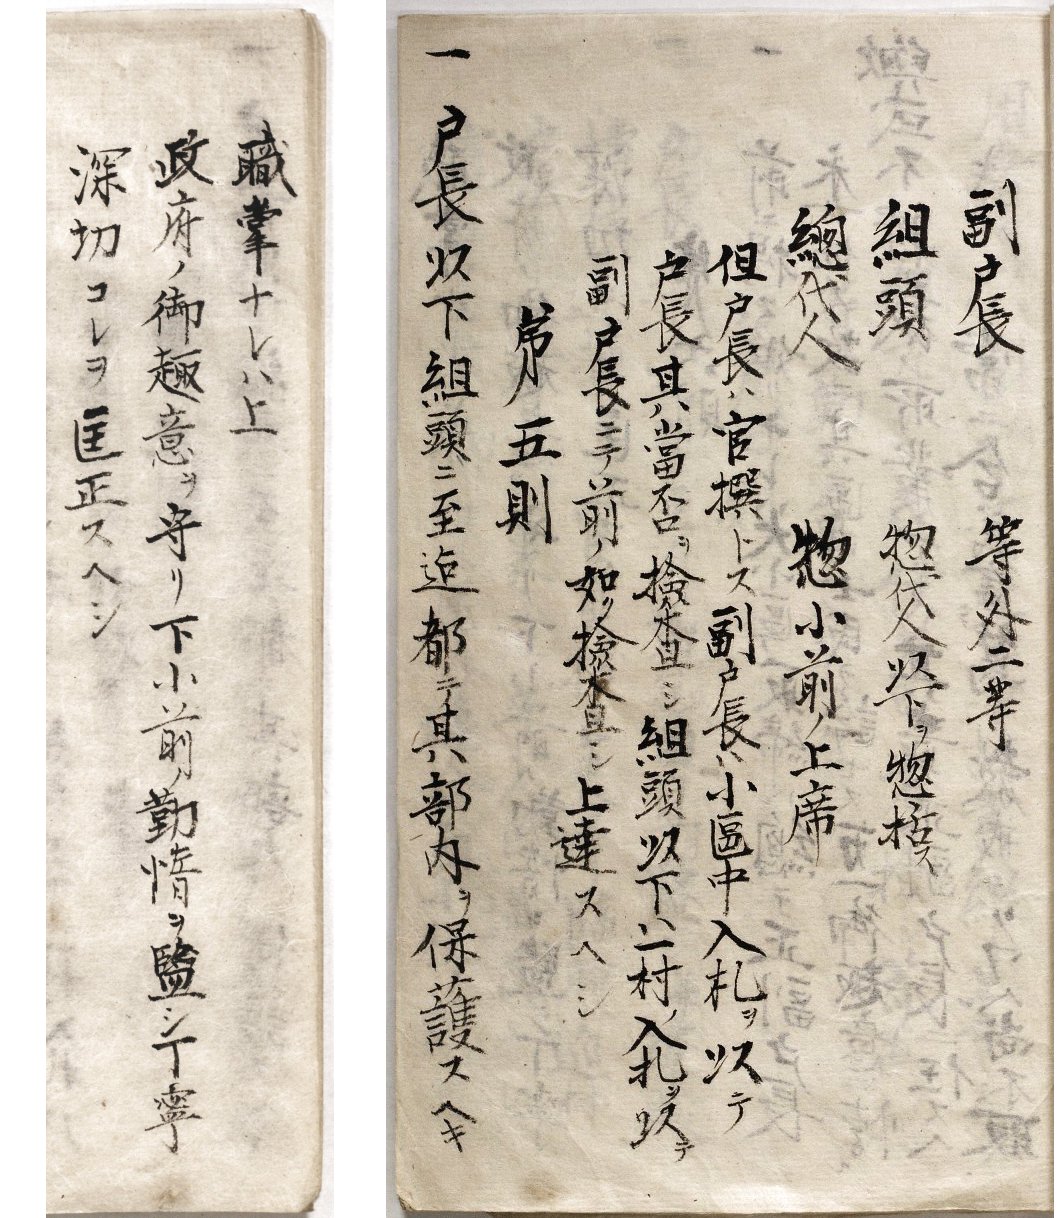 副戸長 等外二等
組頭 惣代人以下ヲ惣括ス
總代人 惣小前ノ上席
但戸長ハ官撰トス副戸長ハ小區中入札ヲ以テ
戸長其當否ヲ撿査シ組頭以下ハ一村ノ入札ヲ以テ
副戸長ニテ前ノ如ク撿査シ上達スヘシ
第五則
一 戸長以下組頭ニ至迄都テ其部内ヲ保護スヘキ
職掌ナレハ上
政府ノ御趣意ヲ守リ下小前ノ勤惰ヲ監シ丁寧
深切コレヲ匡正スヘシ